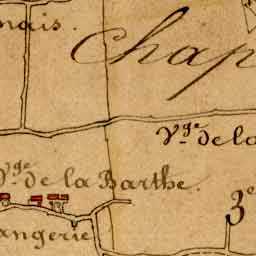 nais.
Chap
Vge. de la
Vge. de la Barthe.
3e
angerie